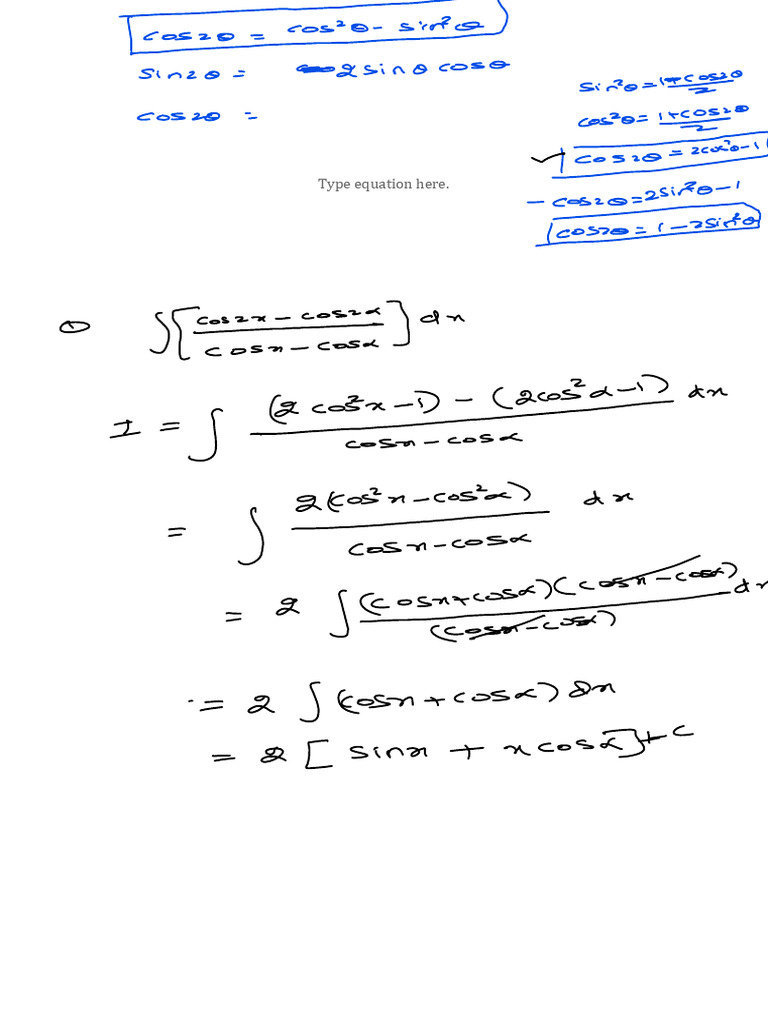 cos2θ = cos²θ - sin²θ
sin2θ = 2sinθcosθ
cos2θ =
cos²θ = 1+cos2θ/2
cos2θ = 2cos²θ-1
- cos2θ = 2sin²θ-1
cos2θ = 1-2sin²θ
Type equation here.
① ∫[cos2x - cos2α / cosx - cosα] dx
I = ∫ (2cos²x-1) - (2cos²α-1) / cosx - cosα dx
= ∫ 2(cos²x - cos²α) / cosx - cosα dx
= 2 ∫ (cosx + cosα)(cosx - cosα) / (cosx - cosα) dx
= 2 ∫ (cosx + cosα) dx
= 2 [ sinx + x cosα ] + c